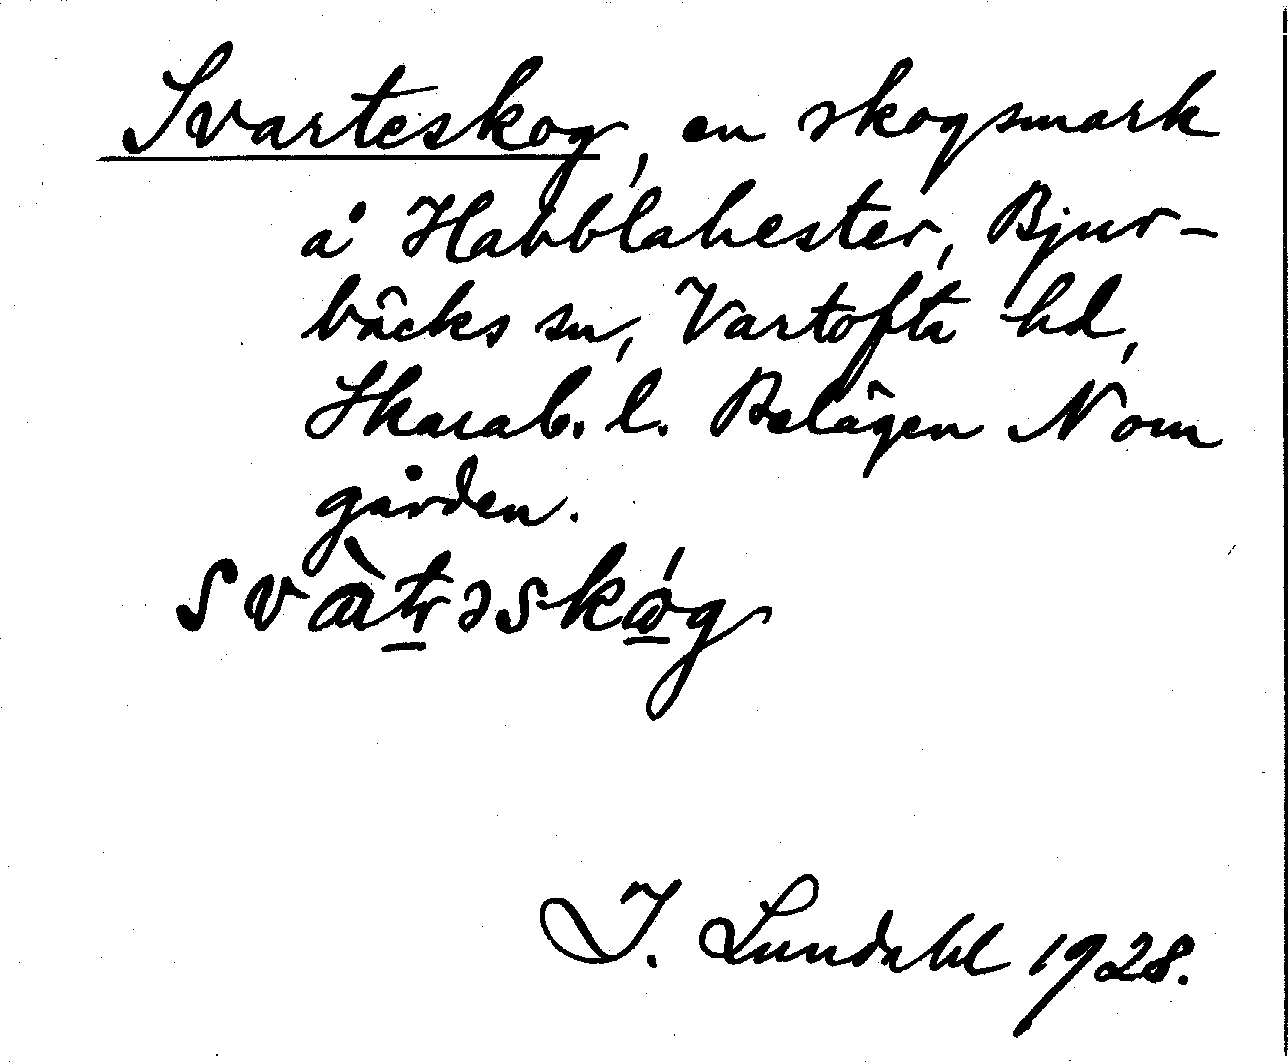 Svarteskog, en skogsmark
å Habblahester, Bjur-
bäcks sn, Vartofta hd,
Skarab. l. Belägen N om
gården.
svàtrəskóg
I. Lundahl 1928.